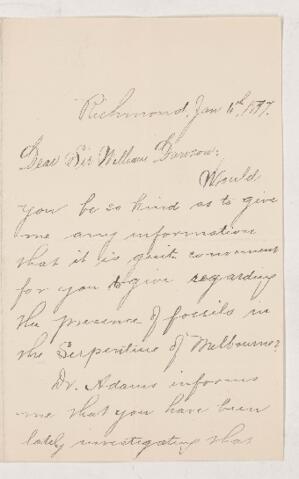 Richmond, Jan 16th, 1897.
Dear Sir William Dawson:
Would
you be so kind as to give
me any information
that it is quite convenient
for you to give regarding
the presence of fossils in
the Serpentine of Melbourne?
Dr. Adams informs
me that you have been
lately investigating that